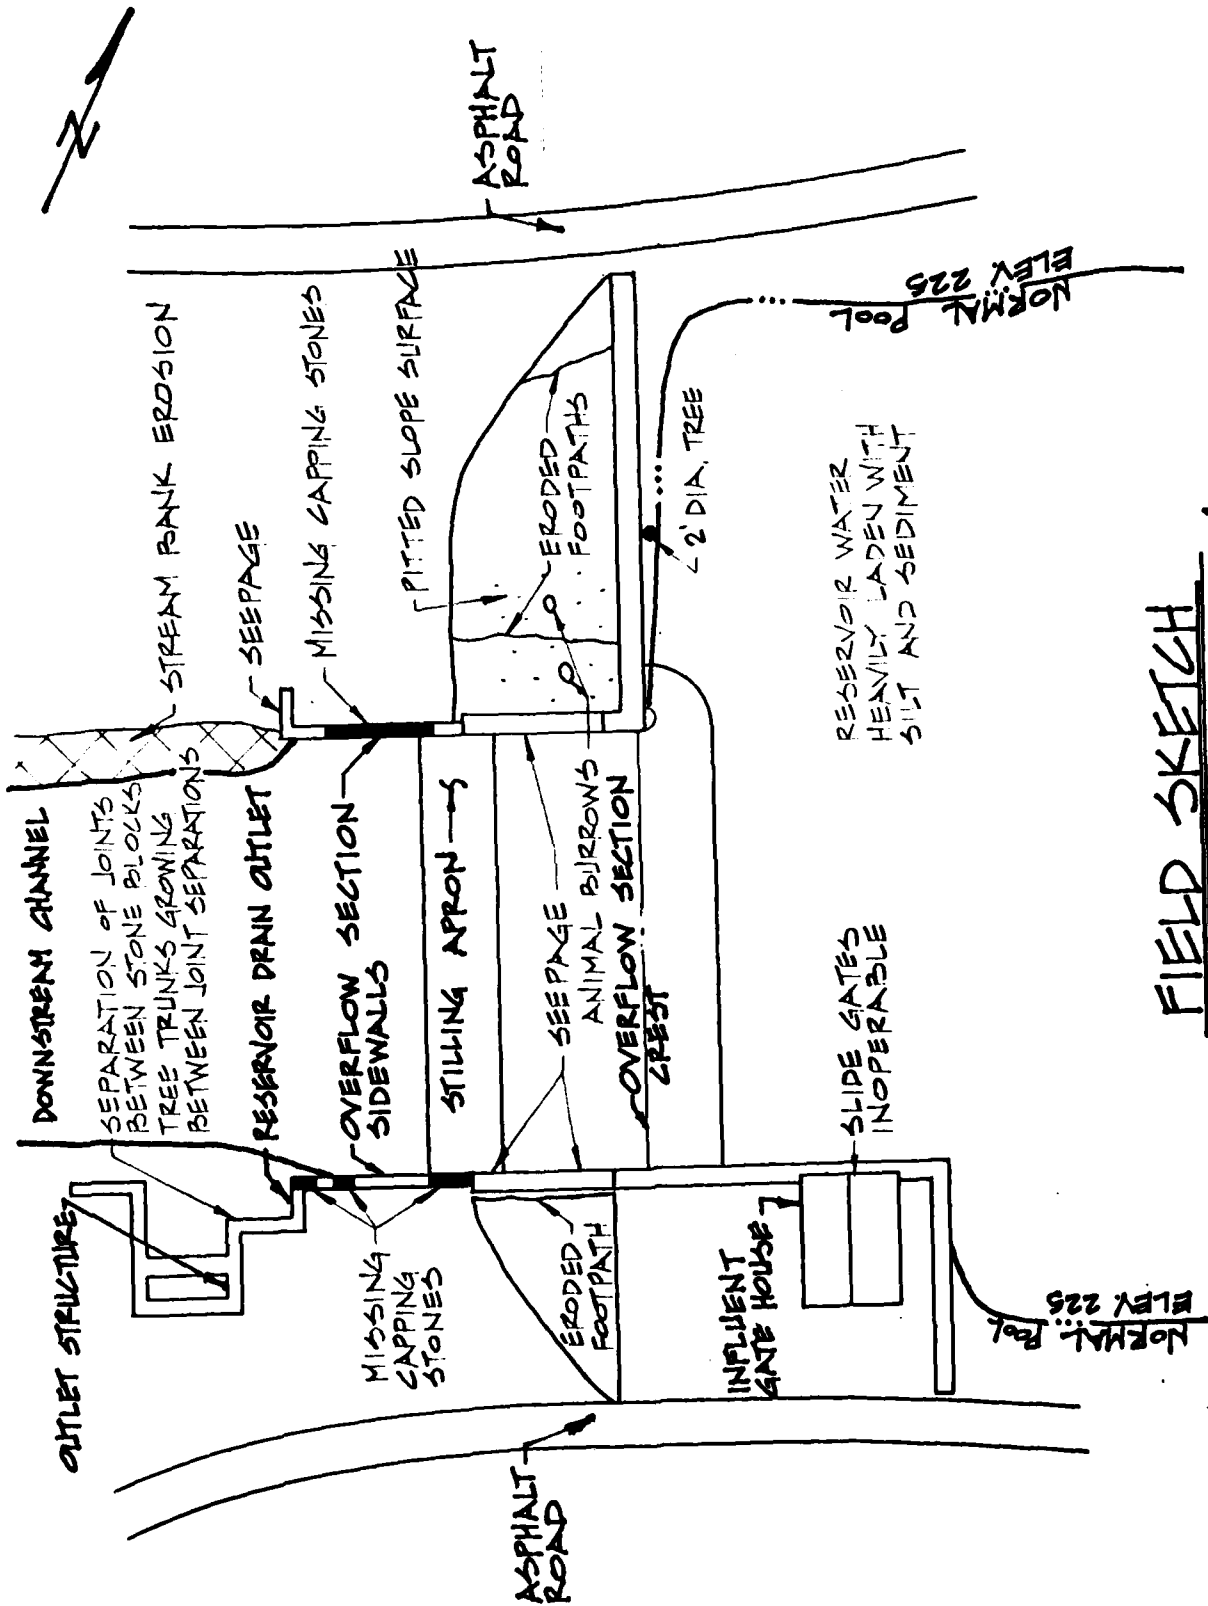 N
ASPHALT
ROAD
STREAM BANK EROSION
SEEPAGE
MISSING CAPPING STONES
PITTED SLOPE SURFACE
ERODED
FOOTPATHS
2' DIA. TREE
NORMAL POOL
ELEV. 225
RESERVOIR WATER
HEAVILY LADEN WITH
SILT AND SEDIMENT
DOWNSTREAM CHANNEL
SEPARATION OF JOINTS
BETWEEN STONE BLOCKS
TREE TRUNKS GROWING
BETWEEN JOINT SEPARATIONS
RESERVOIR DRAIN OUTLET
OVERFLOW SECTION
SIDEWALLS
STILLING APRON
SEEPAGE
ANIMAL BURROWS
OVERFLOW SECTION
CREST
SLIDE GATES
INOPERABLE
OUTLET STRUCTURE
MISSING
CAPPING
STONES
ERODED
FOOTPATH
INFLUENT
GATE HOUSE
NORMAL POOL
ELEV. 225
ASPHALT
ROAD
FIELD SKETCH